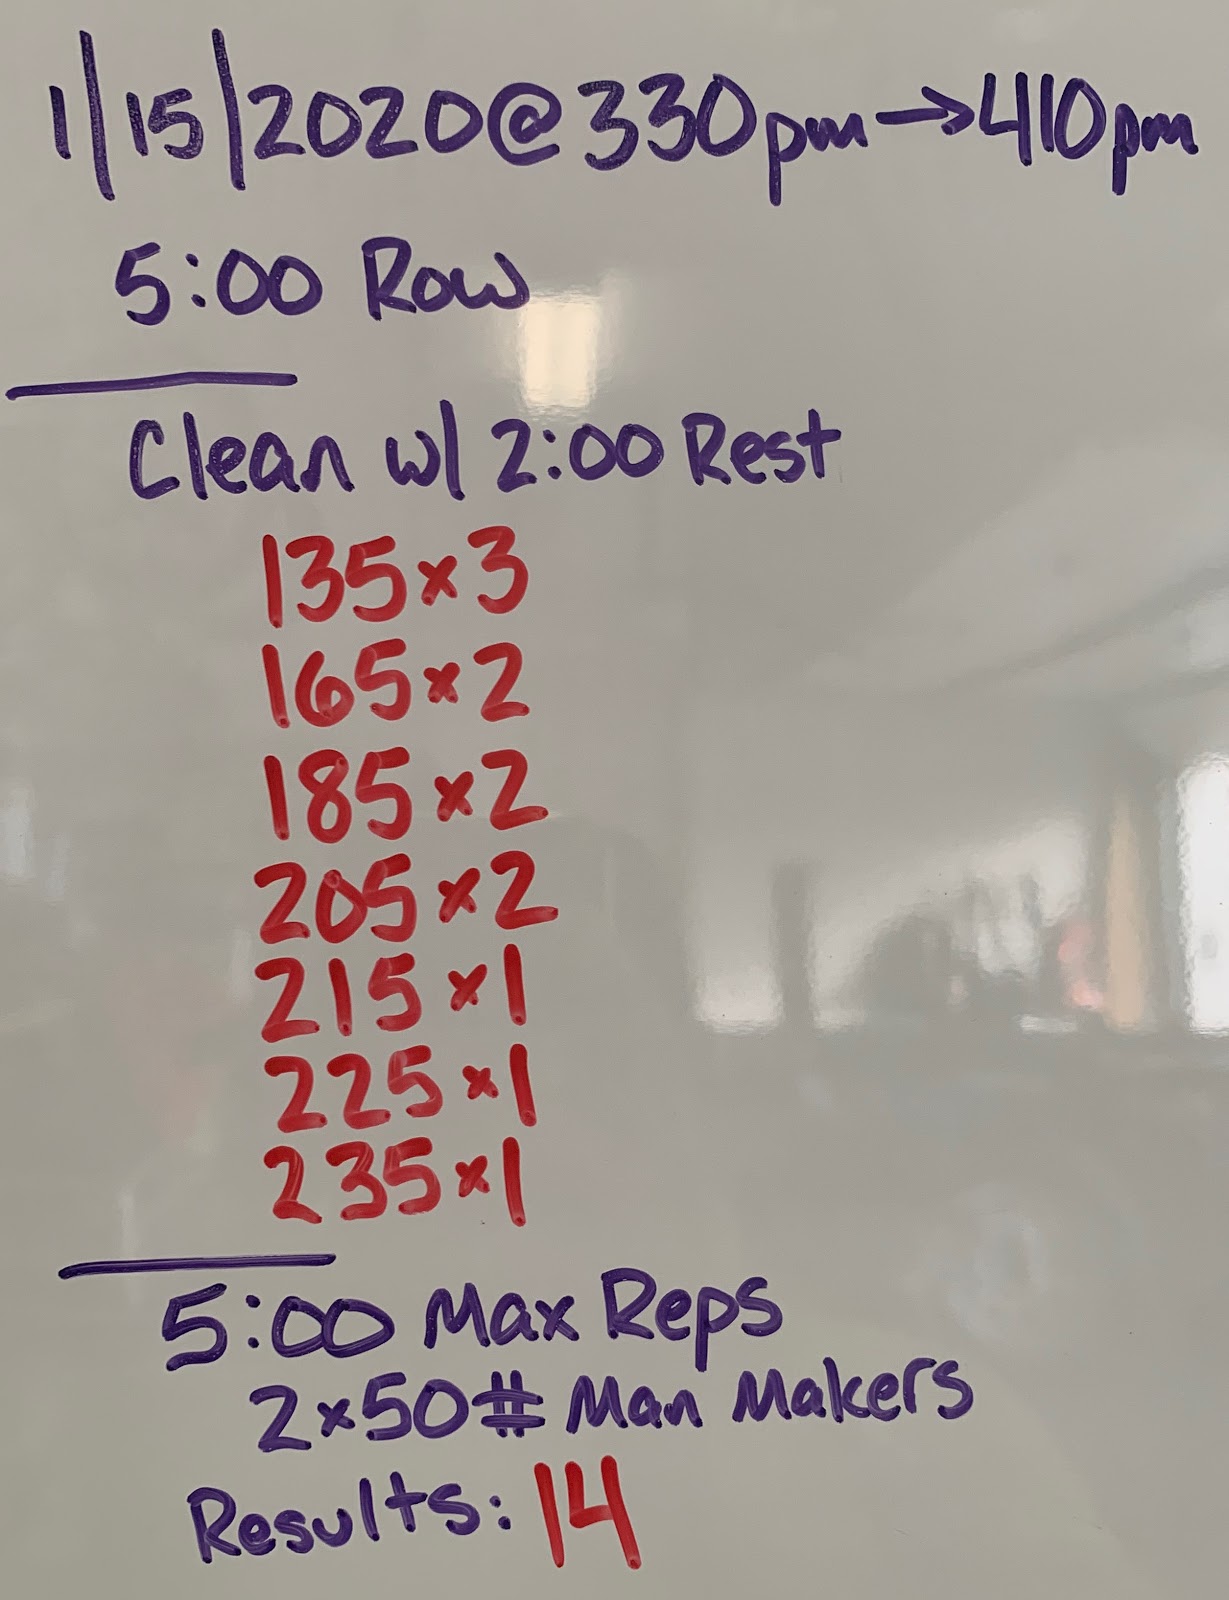 1/15/2020@330pm→410pm
5:00 Row
Clean w/ 2:00 Rest
135×3
165×2
185×2
205×2
215×1
225×1
235×1
5:00 Max Reps
2×50# Man Makers
Results: 14